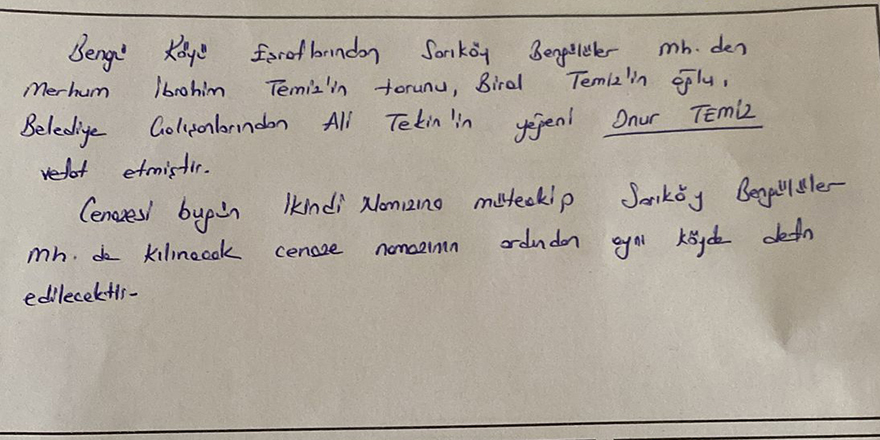 Bengi Köyü Eşraflarından Sarıköy Bengililer mh. den
Merhum İbrahim Temiz'in torunu, Birol Temiz'in oğlu,
Belediye Çalışanlarından Ali Tekin'in yeğeni Onur TEMİZ
vefat etmiştir.
Cenazesi bugün İkindi Namazına müteakip Sarıköy Bengililer
mh. de kılınacak cenaze namazının ardından aynı köyde defn
edilecektir.